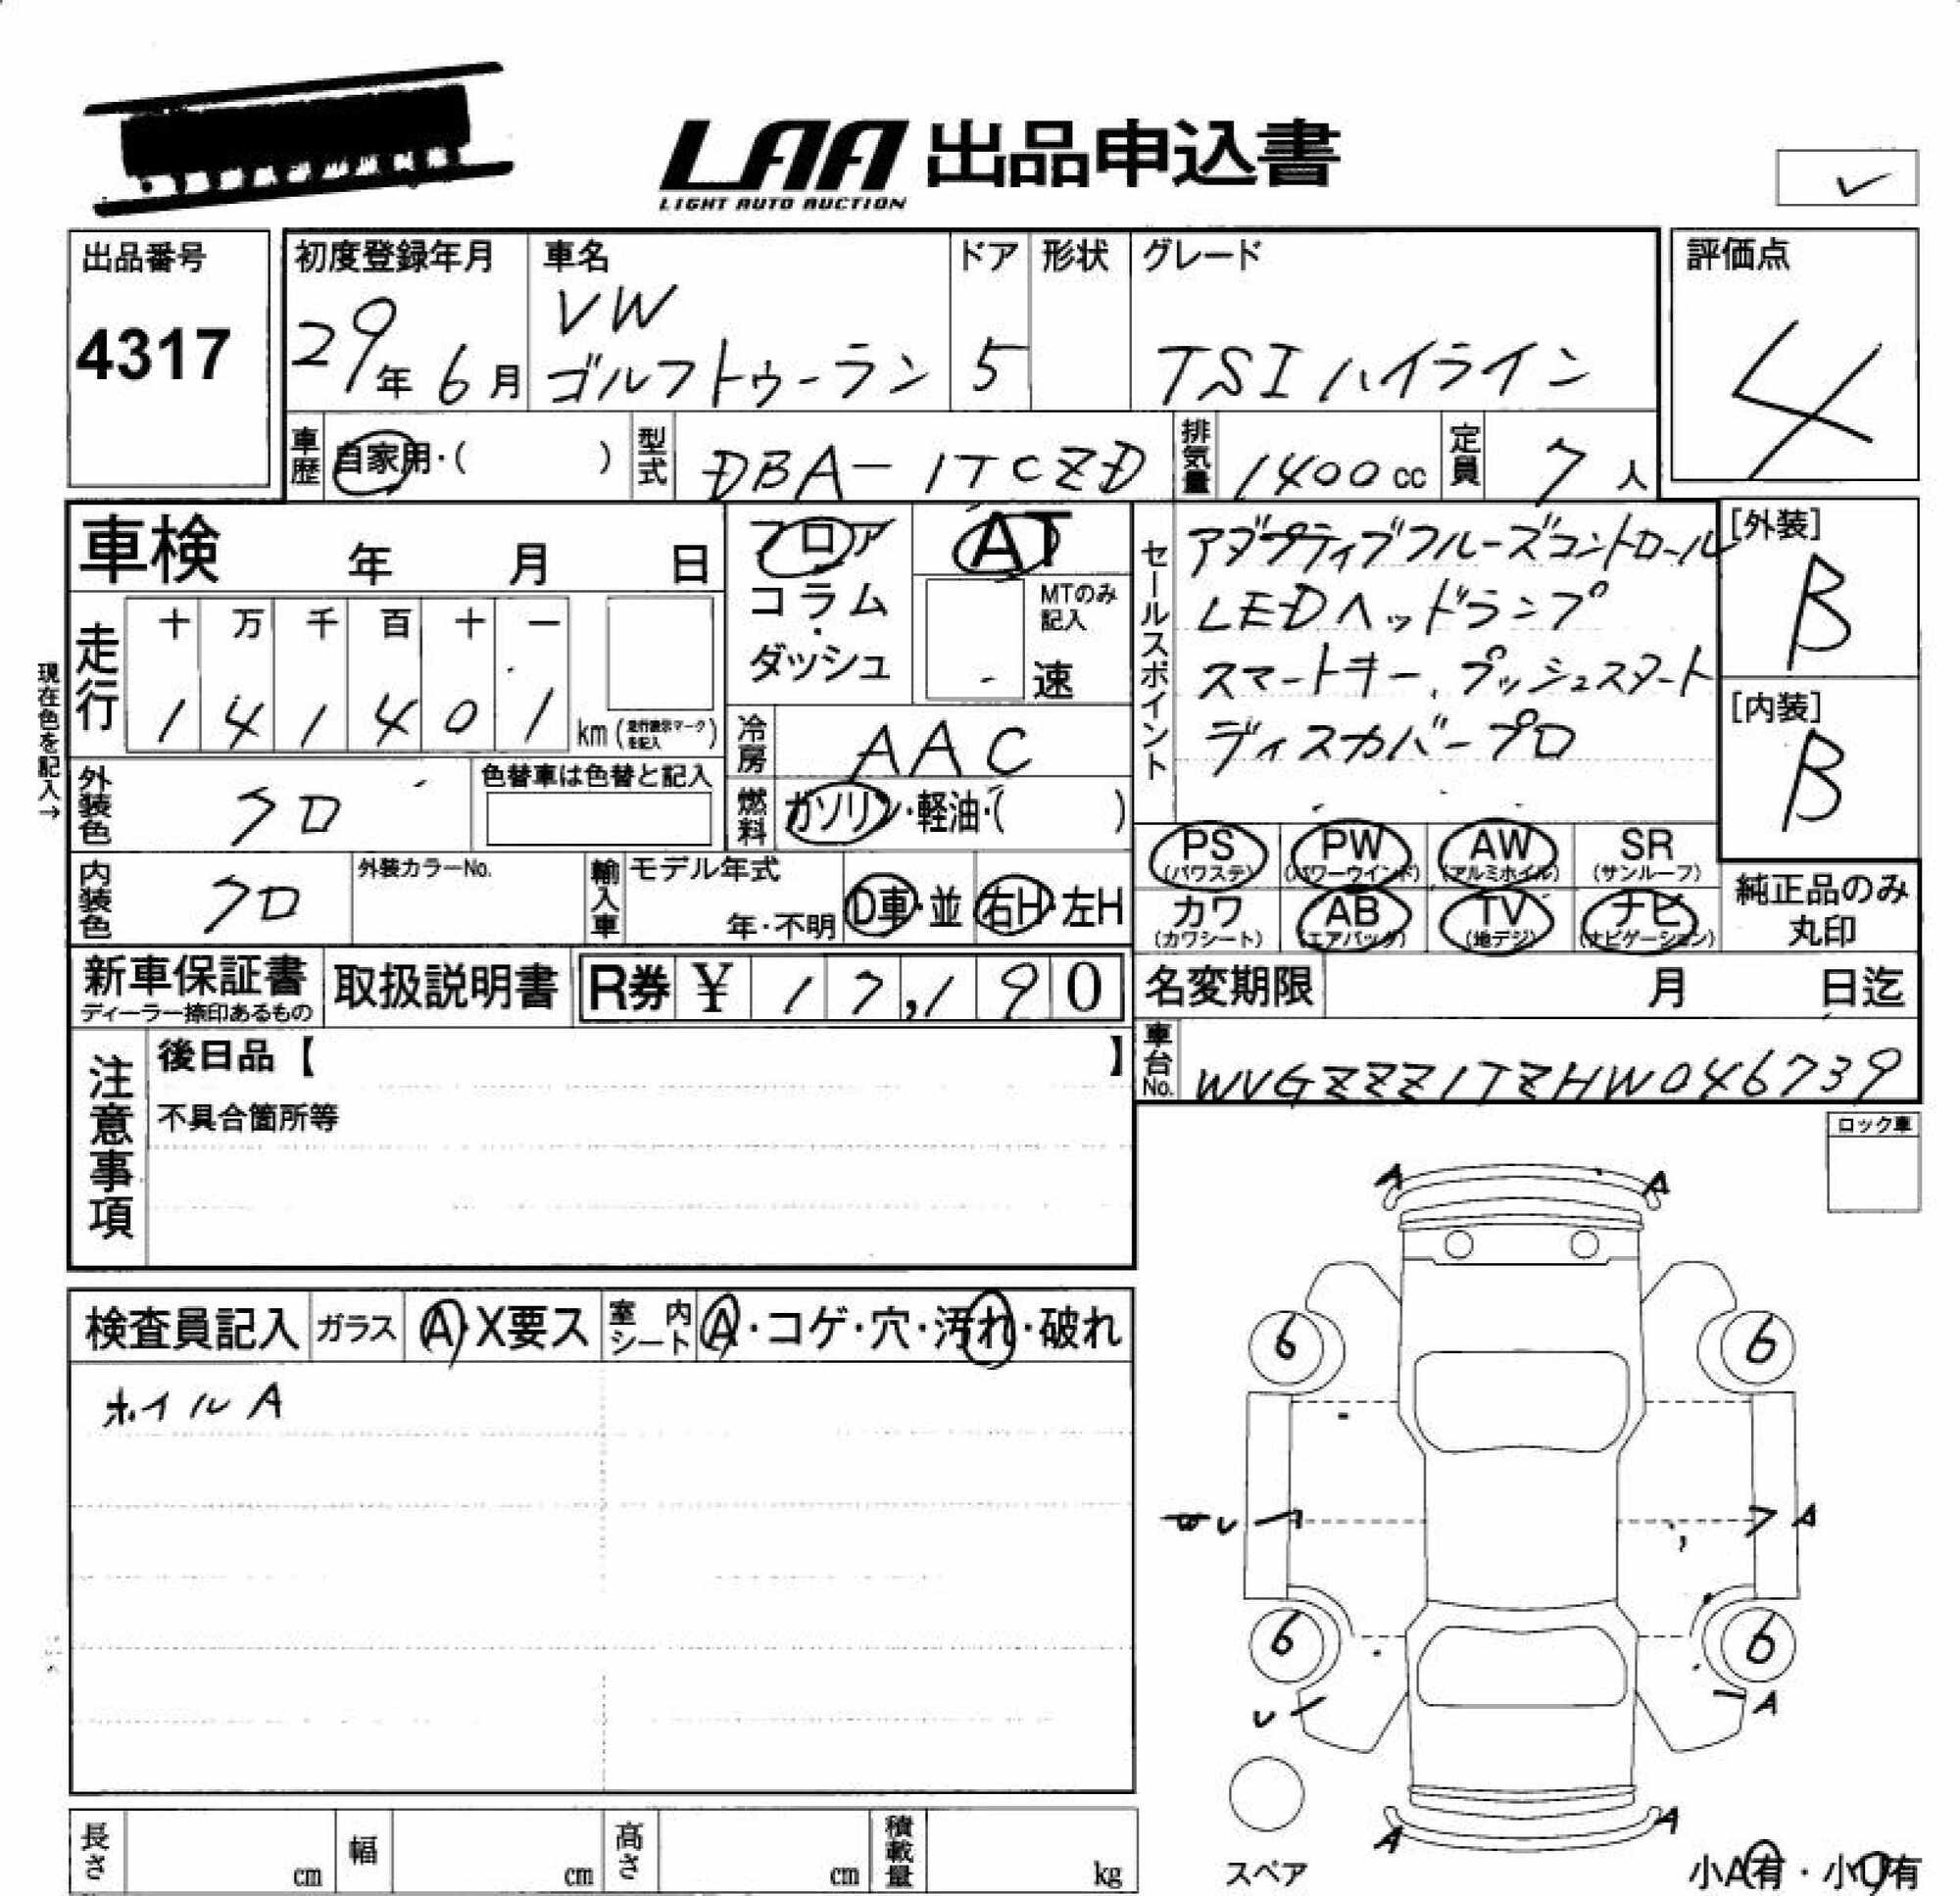 LAA 出品申込書
LIGHT AUTO AUCTION
出品番号
4317
初度登録年月
29年 6月
車名
VW
ゴルフトゥーラン
ドア
5
形状
グレード
TSI ハイライン
評価点
4
車歴 自家用・( )
型式 DBA-1TCZD
排気量 1400cc
定員 7人
車検 年 月 日
フロア
コラム・ダッシュ
AT
MTのみ記入
速
現在色を記入→
走行
十 万 千 百 十 一
1 4 1 4 0 1
km(走行表示マークを記入)
冷房 AAC
燃料 ガソリン・軽油・( )
外装色 クロ
色替車は色替と記入
内装色 クロ
外装カラーNo.
輸入車
モデル年式
年・不明
D車・並
右H・左H
セールスポイント
アダプティブクルーズコントロール
LEDヘッドランプ
スマートキー、プッシュスタート
ディスカバープロ
[外装]
B
[内装]
B
PS (パワステ)
PW (パワーウインド)
AW (アルミホイル)
SR (サンルーフ)
カワ (カワシート)
AB (エアバック)
TV (地デジ)
ナビ (ナビゲーション)
純正品のみ丸印
新車保証書
ディーラー捺印あるもの
取扱説明書
R券 ¥ 17,190
名変期限 月 日迄
車台No. WVGZZZ1TZHW046739
注意事項
後日品【 】
不具合箇所等
ロック車
検査員記入
ガラス A・X要ス
室内シート A・コゲ・穴・汚れ・破れ
ホイルA
A A
6 6
U A
6 6
U A
A A
スペア
小A有・小U有
長さ cm
幅 cm
高さ cm
積載量 kg